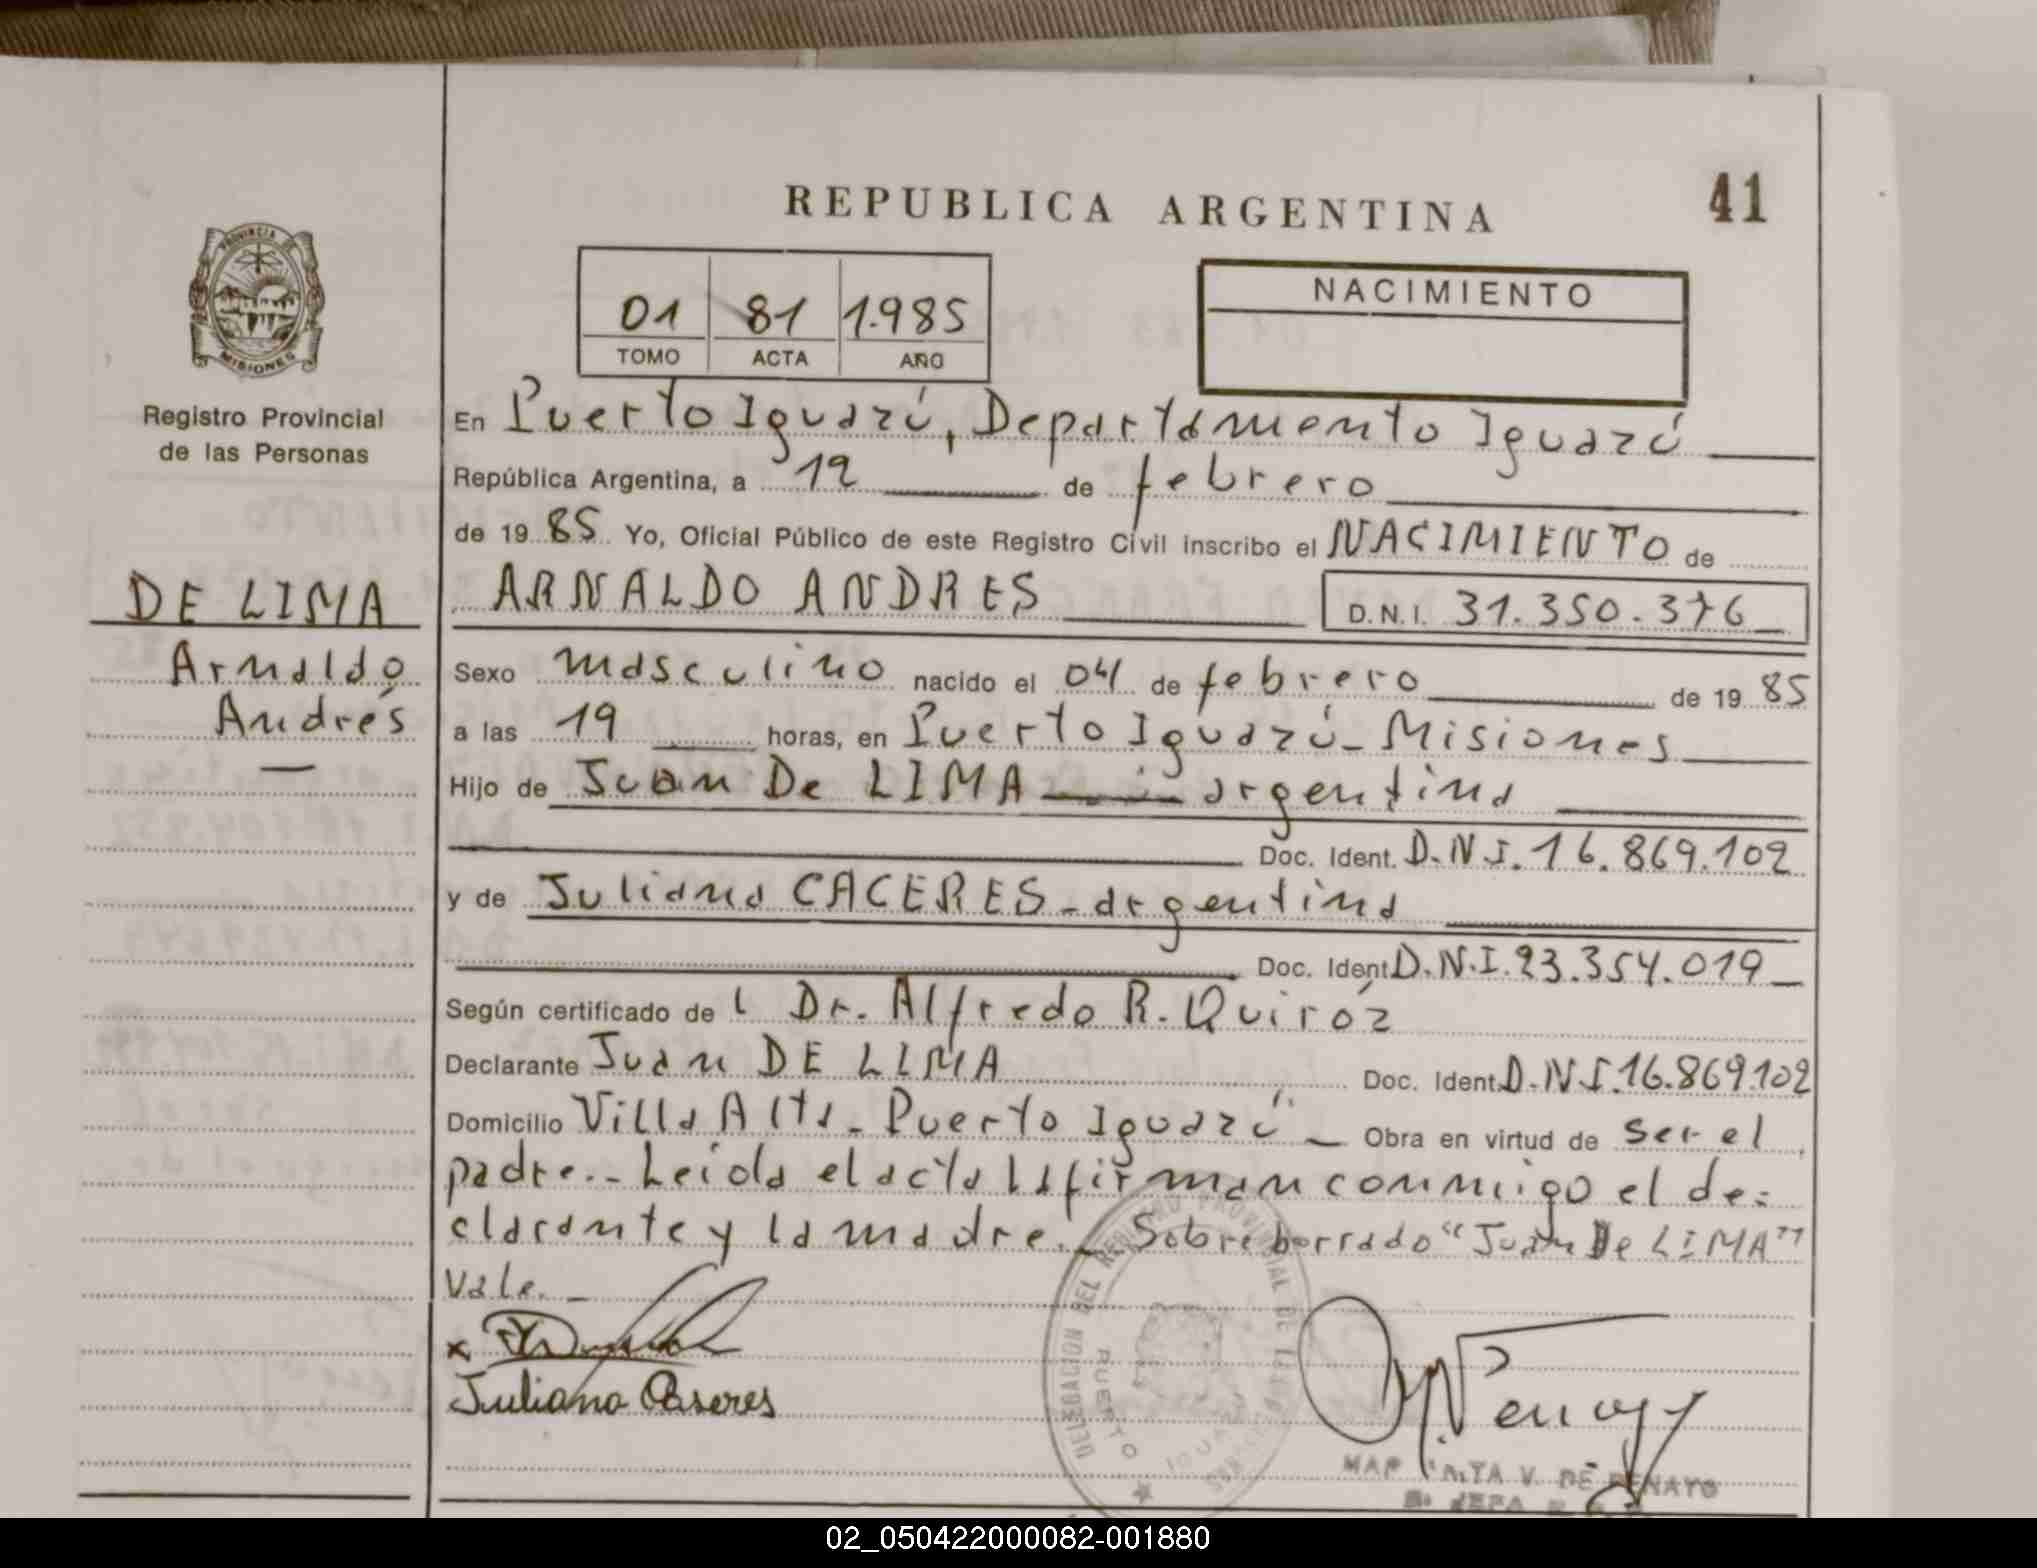 REPUBLICA ARGENTINA
41
PROVINCIA DE
MISIONES
Registro Provincial
de las Personas
01 81 1.985
TOMO ACTA AÑO
NACIMIENTO
En Puerto Iguazú, Departamento Iguazú
República Argentina, a 12 de febrero
de 1985 Yo, Oficial Público de este Registro Civil inscribo el NACIMIENTO de
DE LIMA
Arnaldo
Andrés
ARNALDO ANDRES D.N.I. 31.350.376
Sexo masculino nacido el 04 de febrero de 1985
a las 19 horas, en Puerto Iguazú - Misiones
Hijo de Juan De LIMA argentina
Doc. Ident. D.N.I. 16.869.102
y de Juliana CACERES - argentina
Doc. Ident. D.N.I. 23.354.019
Según certificado de l Dr. Alfredo R. Quiróz
Declarante Juan DE LIMA Doc. Ident. D.N.I. 16.869.102
Domicilio Villa Alta - Puerto Iguazú - Obra en virtud de ser el
padre.- Leida el acta la firman conmigo el de=
clarante y la madre.- Sobre borrado "Juan De LIMA"
Vale.-
x
Juliana Caseres
DELEGACION DEL REGISTRO PROVINCIAL DE
PUERTO IGUAZU
V. DE PENAYO
02_050422000082-001880